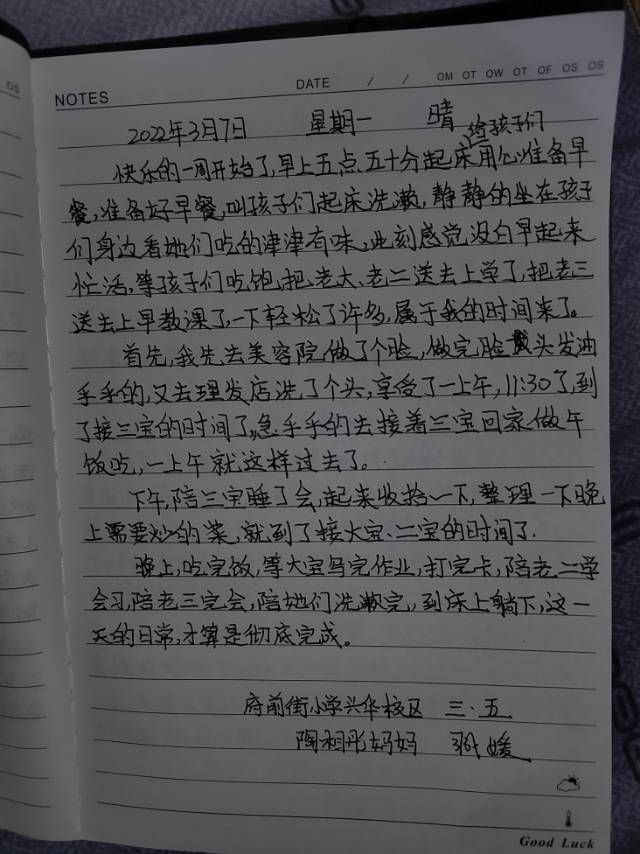 OS
NOTES
DATE / / OM OT OW OT OF OS OS
2022年3月7日 星期一 晴
给孩子们
快乐的一周开始了,早上五点五十分起床用心准备早
餐,准备好早餐,叫孩子们起床洗漱,静静的坐在孩子
们身边看她们吃的津津有味,此刻感觉没白早起来
忙活,等孩子们吃饱,把老大、老二送去上学了,把老三
送去上早教课了,一下轻松了许多,属于我的时间来了。
首先,我先去美容院做了个脸,做完脸头发油
乎乎的,又去理发店洗了个头,享受了一上午,11:30了,到
了接三宝的时间了,急乎乎的去接着三宝回家做午
饭吃,一上午就这样过去了。
下午,陪三宝睡了会,起来收拾一下,整理一下晚
上需要炒的菜,就到了接大宝、二宝的时间了.
晚上,吃完饭,等大宝写完作业,打完卡,陪老二学
会习,陪老三完会,陪她们洗漱完,到床上躺下,这一
天的日常,才算是彻底完成。
府前街小学兴华校区 三.五
陶相彤妈妈 媛
Good Luck